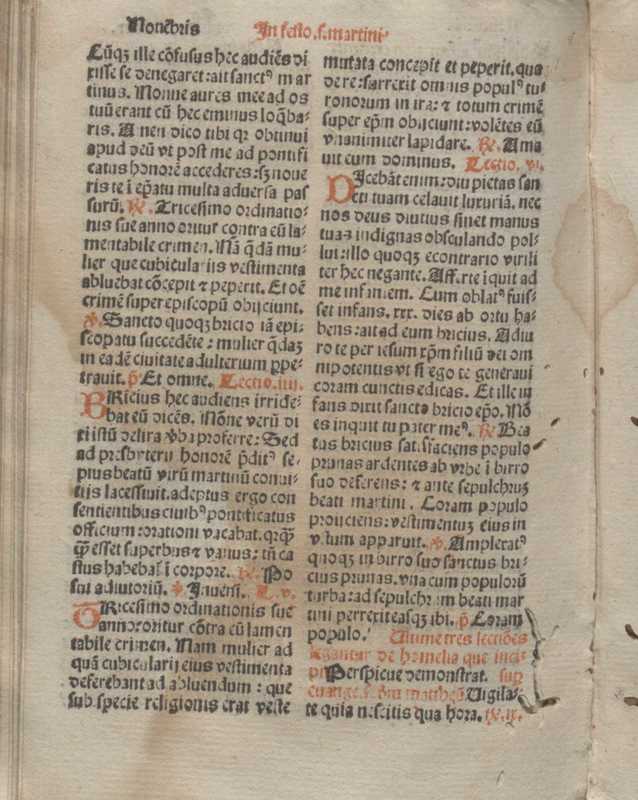 Nouẽbris
In festo .s. martini
Cũqʒ ille cõfusus hec audiẽs di
xisse se denegaret: ait sanctꝰ mar
tinus. Nonne aures mee ad os
tuũ erant cũ hec eminus loq̃ba-
ris. Amen dico tibi qꝛ obtinui
apud deũ vt post me ad pontifi
catus honorẽ accederes: sʒ noue
ris te ĩ ep̃atu multa aduersa pas
surũ. ℟. Tricesimo ordinatio-
nis sue anno oritur contra eũ la-
mentabile crimen. Nã q̃dã mu-
lier que cubiculariis vestimenta
abluebat cõcepit ⁊ peperit. Et oẽ
crimẽ super episcopũ obijciunt.
℣. Sancto quoqʒ bricio iã epi-
scopatu succedẽte: mulier q̃daʒ
in eadẽ ciuitate adulterium ꝑpe-
trauit. p̃. Et omne. Lectio .iiij.
BRicius hec audiens irride-
bat eũ dicẽs. Nõne verũ di
xi istũ delira ꝟba proferre: Sed
ad presbyterij honorẽ p̃ditꝰ se-
pius beatũ virũ martinũ conui-
tiis lacessiuit. adeptus ergo con
sentientibus ciuibꝰ pontificatus
officium: orationi vacabat. qꝛqʒ
q̃ esset superbus ⁊ vanus: tñ ca
stus habebat᷑ ĩ corpore. ℟. Po
sui adiutoriũ. ℣. Inueni. L. v.
TRicesimo ordinationis sue
anno: oritur cõtra eũ lamen
tabile crimen. Nam mulier ad
quã cubicularij eius vestimenta
deferebant ad abluendum: que
sub specie religionis erat veste
mutata concepit et peperit. qua
de re: surrexit omnis populꝰ tu-
ronorum in ira: ⁊ totum crimẽ
super ep̃m obijciunt: volẽtes eũ
vnanimiter lapidare. ℟. Ama
uit eum dominus. Lectio. vi.
DIcebãt enim: diu pietas san
cti tuam celauit luxuriã. nec
nos deus diutius sinet manus
tuas indignas obsculando pol-
lui: illo quoqʒ econtrario virili
ter hec negante. Afferte iquit ad
me infantem. Cum oblatꝰ fuis-
set infans .xxx. dies ab ortu ha-
bens: ait ad eum bricius. Adiu
ro te per iesum xp̃m filiũ dei om
nipotentis vt si ego te generaui
coram cunctis edicas. Et ille in
fans dixit sancto bricio ep̃o. Nõ
es inquit tu pater meꝰ. ℟. Bea
tus bricius satisfaciens populo
prunas ardentes ab vrbe ĩ birro
suo deferens: ⁊ ante sepulchruʒ
beati martini. Coram populo
proijciens: vestimentuʒ eius in
violum apparuit. ℣. Amplexatꝰ
quoqʒ in birro suo sanctus bri-
cius prunas. vna cum populorũ
turba: ad sepulchrum beati mar
tini perrexit easqʒ ibi. p̃. Coram
populo. Ultime tres lectiões
legantur de homelia que inci-
pit Perspicue demonstrat. sup
euange. s. ẽm matheũ Uigila-
te quia nescitis qua hora. ℟. ix.